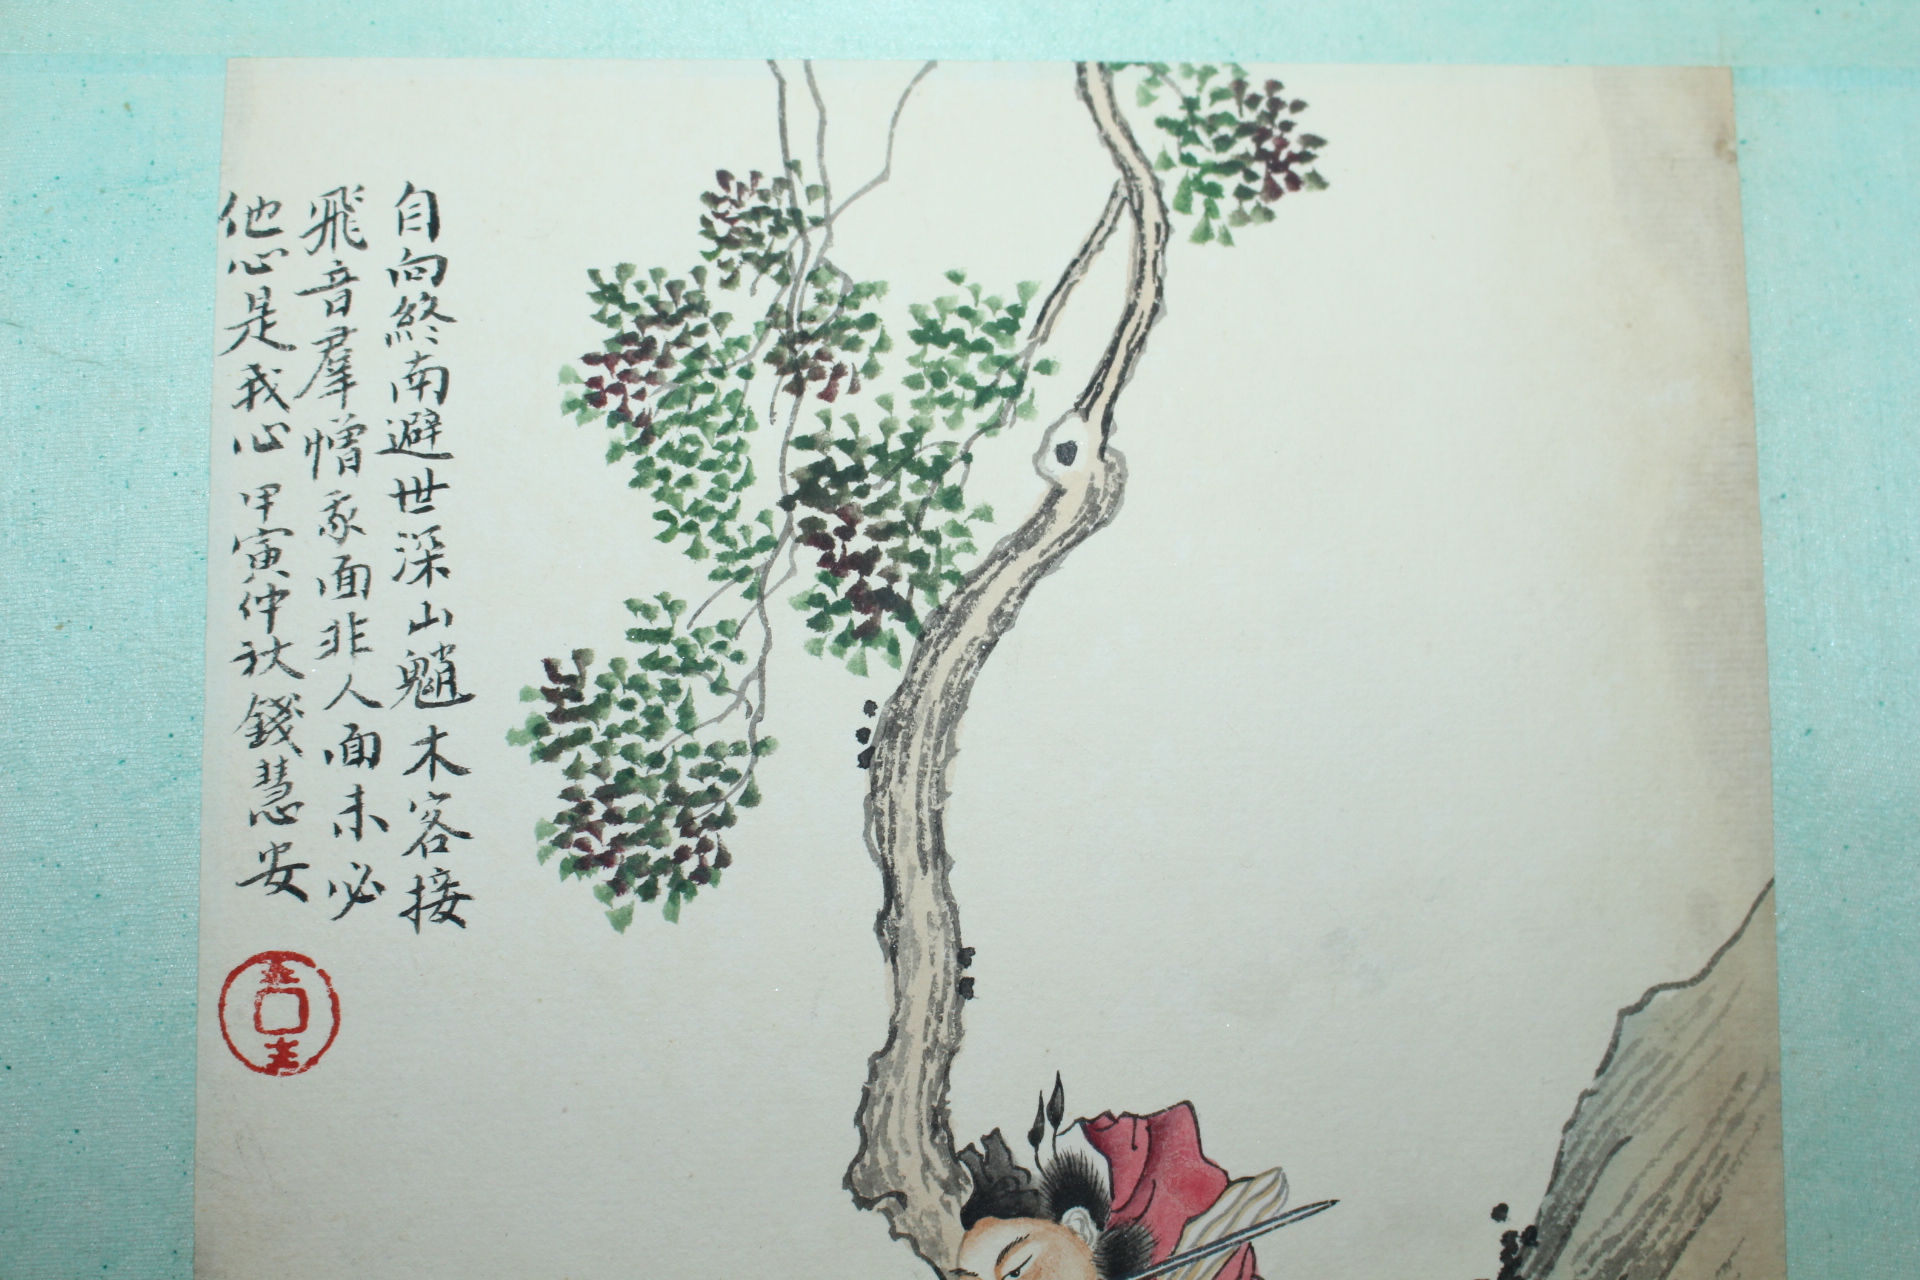 自向終南避世深山魈木客接
飛音羣憎豕面非人面未必
他心是我心甲寅仲秋錢慧安